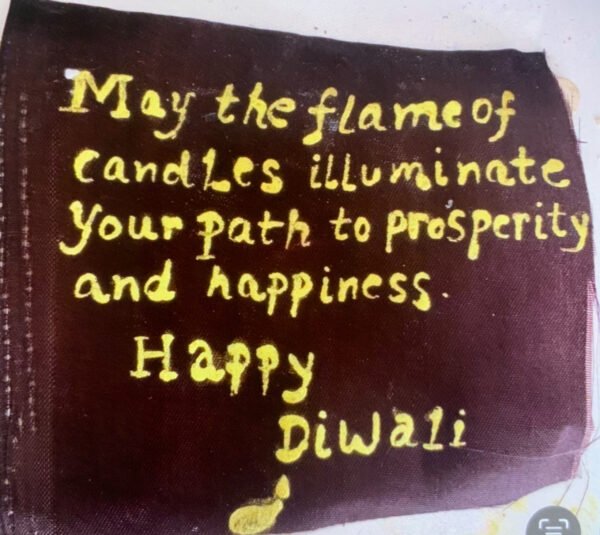 May the flame of
candles illuminate
Your path to prosperity
and happiness.
Happy
Diwali